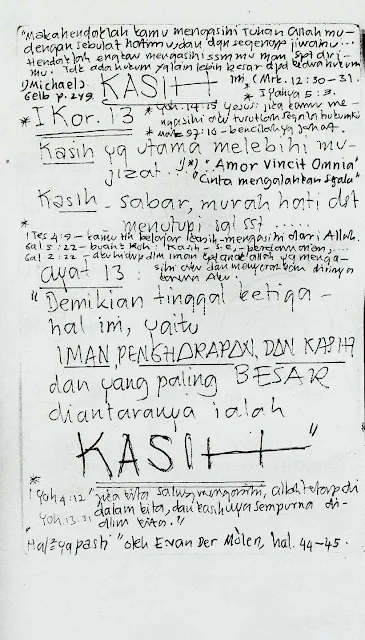 "Maka hendaklah kamu mengasihi Tuhan Allahmu
dengan sebulat hatimu, dan dgn segenap jiwamu...
Hendaklah engkau mengasihi ssmmu man. sptdiri-
mu. Tdk ada hukum yg lain lebih besar dpd kedua hukum
1) Michael) KASIH ini. (Mrk. 12:30-31.
Gelb p. 279. 1 Yoh 5:3.
* I Kor. 13 * Yoh. 14:15 Yesus: jika kamu me-
ngasihi aku turutlah segala hukumku
* maz 97:10 - bencilah yg jahat.
Kasih yg utama melebihi mu-
jizat. *) "Amor Vincit Omnia"
"Cinta mengalahkan segala"
Kasih - sabar, murah hati dst
menutupi sgl sst ......
* 1 Tes 4:9 - kamu tlh belajar kasih-mengasihi dari Allah.
Gal 5:22 - buah Roh: Kasih -
Gal 2:20 - aku hidup dlm iman kpd anak Allah yg menga-
ayat 13: sihi aku dan menyerahkan dirinya
karena aku.
"Demikian tinggal ketiga-
hal ini, yaitu
IMAN, PENGHARAPAN, DAN KASIH
dan yang paling BESAR
diantaranya ialah
KASIH"
*
1 Yoh 4:12 "jika kita saling mengasihi, allah tetap di
Yoh. 13:31 dalam kita, dan kasihnya sempurna di-
dlm kita."
Hal² yg pasti "oleh E. van Der Molen, hal. 44-45.